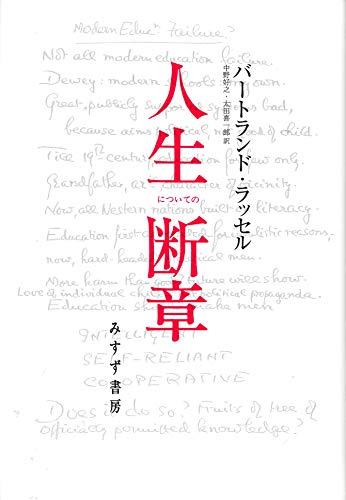 バートランド・ラッセル
中野好之・太田喜一郎訳
人生
についての
断章
みすず書房
Modern Educⁿ Failure?
Not all modern education failure.
Dewey: modern schools own.
Great, publicly supported system bad,
because aims not good of child.
Till 19th century education for few only.
Grandfather, character of vicinity.
Now, all Western nations built on literacy.
Education first for idealistic reasons,
now, hard-headed men.
More harm than good future will show.
Love of individual child political propaganda.
Education make men
INTELLIGENT
SELF-RELIANT
CO-OPERATIVE
Does it do so? Fruits of tree of
officially permitted knowledge?